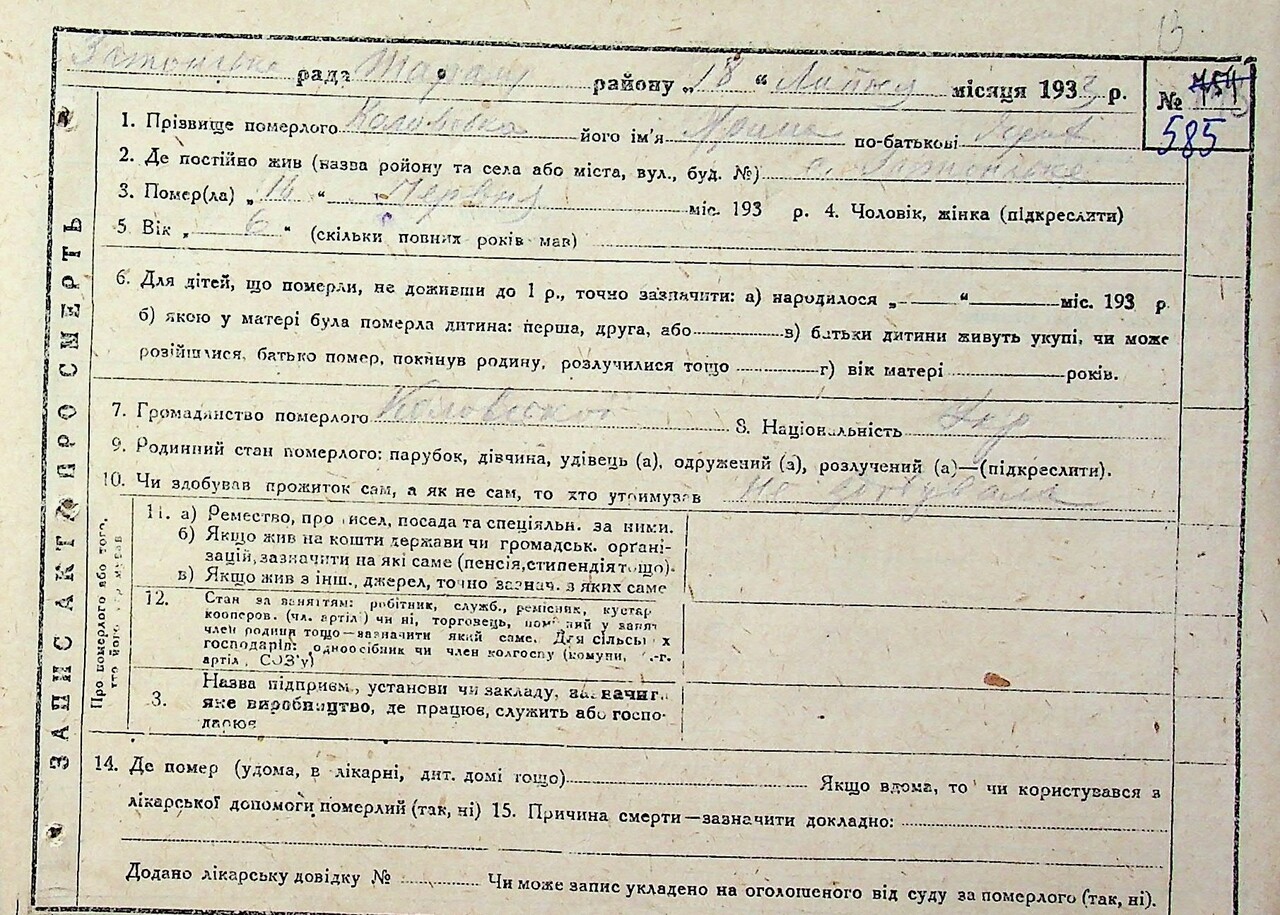 рада району „18“ Липня місяця 1933 р.
№ 585
1. Прізвище померлого його ім'я по-батькові
2. Де постійно жив (назва ройону та села або міста, вул., буд. №) с.
3. Помер(ла) „ “ Червня міс. 193 р. 4. Чоловік, жінка (підкреслити)
5. Вік „ 6 “ (скільки повних років мав)
6. Для дітей, що померли, не доживши до 1 р., точно зазначити: а) народилося „ “ міс. 193 р.
б) якою у матері була померла дитина: перша, друга, або в) батьки дитини живуть укупі, чи може
розійшлися, батько помер, покинув родину, розлучилися тощо г) вік матері років.
7. Громадянство померлого 8. Національність Укр
9. Родинний стан померлого: парубок, дівчина, удівець (а), одружений (а), розлучений (а)—(підкреслити).
10. Чи здобував прожиток сам, а як не сам, то хто утримував не
ЗАПИС АКТУ ПРО СМЕРТЬ
Про померлого або того,
хто його
11. а) Ремество, про исел, посада та спеціяльн. за ними.
б) Якщо жив на кошти держави чи громадськ. орґані-
зацій, зазначити на які саме (пенсія, стипендія тощо).
в) Якщо жив з інш., джерел, точно зазнач. з яких саме
12. Стан за заняттям: робітник, служб., ремісник, кустар
кооперов. (чл. артіл) чи ні, торговець, у занят
член родини тощо—зазначити який саме. Для сільсь х
господарів: одноосібник чи член колгоспу (комуни, .-г.
артіл, СОЗ'у)
3. Назва підприєм., установи чи закладу, зазначит.
яке виробництво, де працює, служить або госпо-
дарює
14. Де помер (удома, в лікарні, дит. домі тощо) Якщо вдома, то чи користувався з
лікарської допомоги померлий (так, ні) 15. Причина смерти—зазначити докладно:
Додано лікарську довідку № Чи може запис укладено на оголошеного від суду за померлого (так, ні).